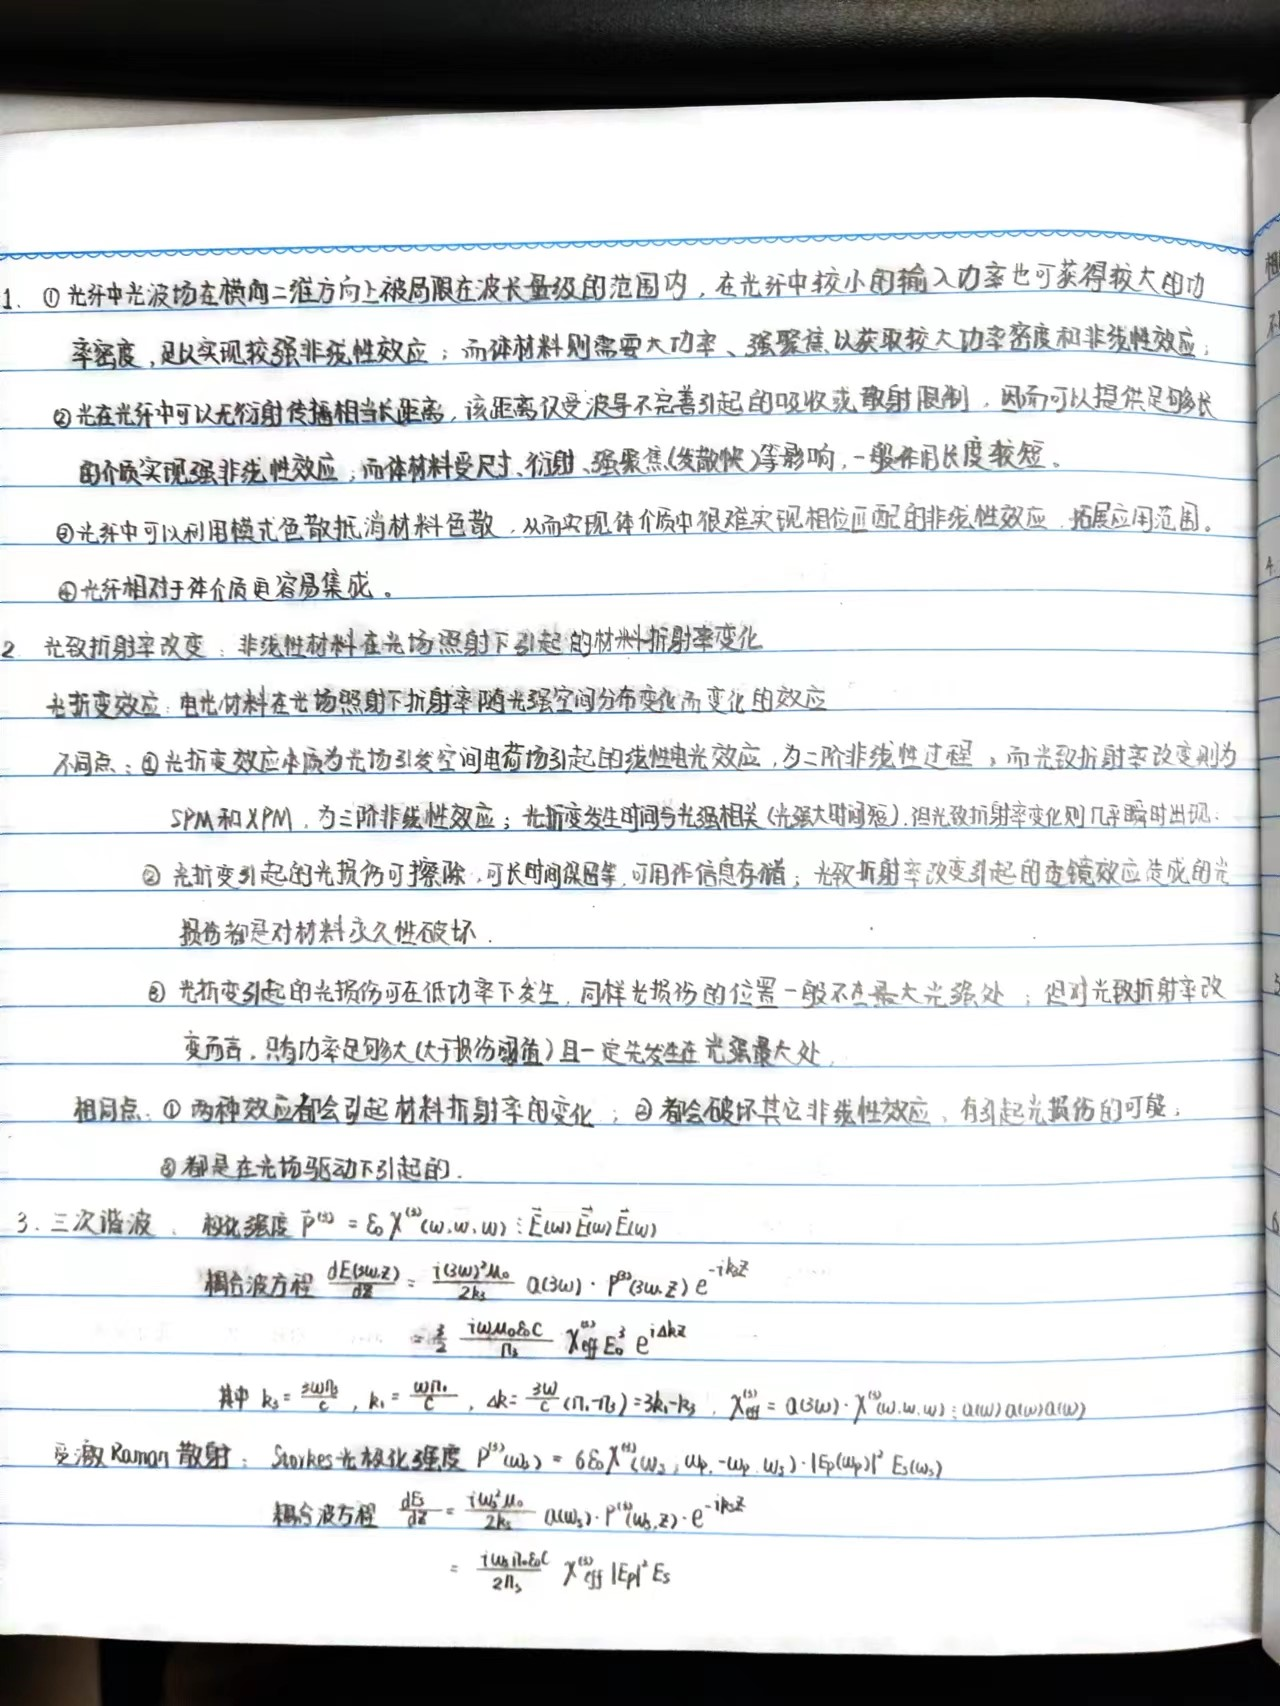 1. ① 光纤中光波场在横向二维方向上被局限在波长量级的范围内，在光纤中较小的输入功率也可获得较大的功
率密度，足以实现较强非线性效应；而体材料则需要大功率、强聚焦以获取较大功率密度和非线性效应；
② 光在光纤中可以无衍射传播相当长距离，该距离仅受波导不完善引起的吸收或散射限制，因而可以提供足够长
的介质实现强非线性效应；而体材料受尺寸、衍射、强聚焦(发散快)等影响，一般作用长度较短。
③ 光纤中可以利用模式色散抵消材料色散，从而实现体介质中很难实现相位匹配的非线性效应，拓展应用范围。
④ 光纤相对于体介质更容易集成。
2 光致折射率改变：非线性材料在光场照射下引起的材料折射率变化
光折变效应：电光材料在光场照射下折射率随光强空间分布变化而变化的效应
不同点：① 光折变效应本质为光场引发空间电荷场引起的线性电光效应，为二阶非线性过程；而光致折射率改变则为
SPM和XPM，为三阶非线性效应；光折变发生时间与光强相关(光强大时间短)，但光致折射率变化则几乎瞬时出现；
② 光折变引起的光损伤可擦除，可长时间保留等，可用作信息存储；光致折射率改变引起的透镜效应造成的光
损伤都是对材料永久性破坏．
③ 光折变引起的光损伤可在低功率下发生，同样光损伤的位置一般不在最大光强处；但对光致折射率改
变而言，只有功率足够大(大于损伤阈值)且一定先发生在光强最大处．
相同点：① 两种效应都会引起材料折射率的变化；② 都会破坏其它非线性效应、有引起光损伤的可能；
③ 都是在光场驱动下引起的．
3. 三次谐波． 极化强度 P⃗⁽³⁾ = ε₀χ⁽³⁾(ω,ω,ω)⋮E⃗(ω)E⃗(ω)E⃗(ω)
耦合波方程 dE(3ω,z)/dz = i(3ω)²μ₀/2k₃ a(3ω)·P⁽³⁾(3ω,z) e^{-ik₃z}
= 3/2 iωμ₀ε₀c/n₃ χ⁽³⁾eff E₀³ e^{iΔkz}
其中 k₃ = 3ωn₃/c , k₁ = ωn₁/c , Δk = 3ω/c (n₁-n₃) = 3k₁-k₃ , χ⁽³⁾eff = a(3ω)·χ⁽³⁾(ω,ω,ω)⋮a(ω)a(ω)a(ω)
受激Raman散射： Storkes光极化强度 P⁽³⁾(ωs) = 6ε₀χ⁽³⁾(ωs; ωp,-ωp,ωs)·|Ep(ωp)|² Es(ωs)
耦合波方程 dEs/dz = iωs²μ₀/2ks a(ωs)·P⁽³⁾(ωs,z)·e^{-iksz}
= χ⁽³⁾eff |Ep|² Es